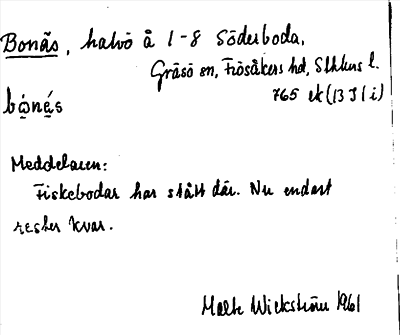 Bonäs, halvö å 1-8 Söderboda,
Gräsö sn, Frösåkers hd, Sthlms l.
765 ek (13 J 1 i)
bọ́nẹ́s
Meddelaren:
Fiskebodar har stått där. Nu endast
rester kvar.
Malte Wickström 1961